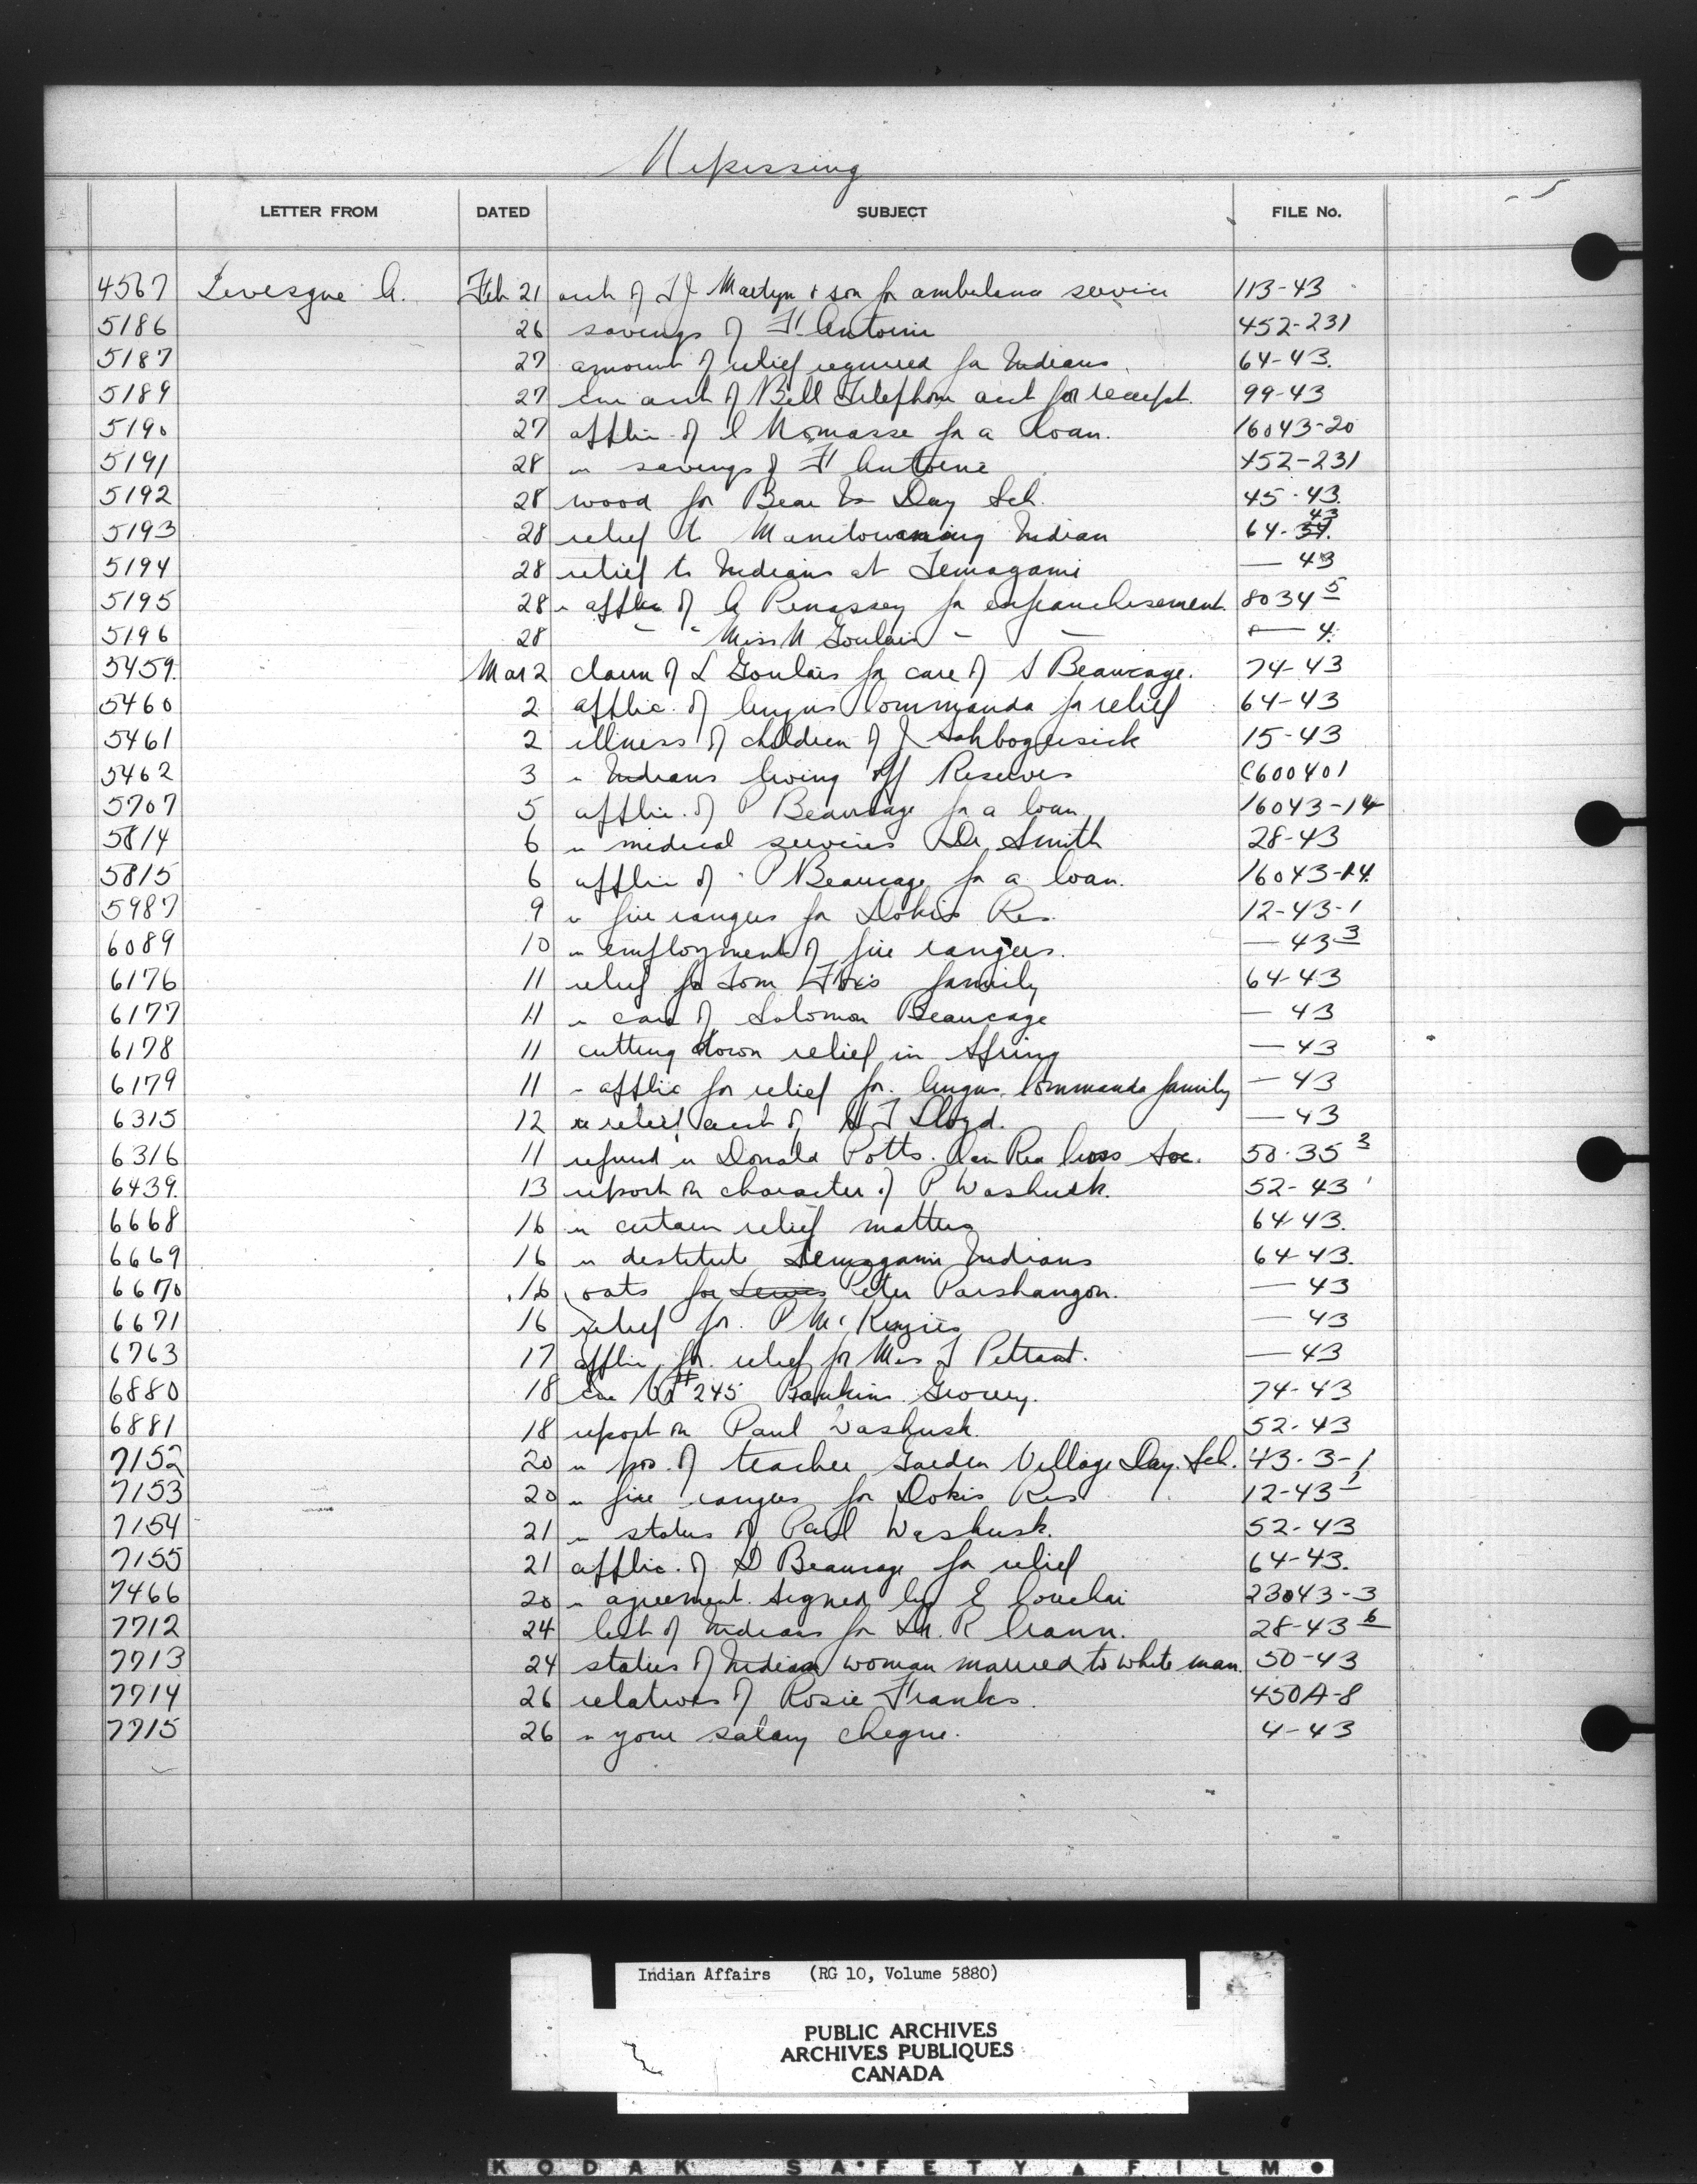 Nipissing
LETTER FROM DATED SUBJECT FILE No.
4567 Levesque A. Feb 21 acct of T J Martyn & son for ambulance service 113-43
5186 26 savings of F. Antoine 452-231
5187 27 amount of relief required for Indians 64-43.
5189 27 acct of Bell Telephone acct for receipt. 99-43
5190 27 applic. of Momasse for a loan. 16043-20
5191 28 re savings of F Antoine 452-231
5192 28 wood for Bear Is Day Sch. 45-43.
5193 28 relief to Manitowaning Indian 64-34. 43
5194 28 relief to Indians at Temagami — 43
5195 28 re applic of A Penassey for enfranchisement. 8034 5
5196 28 " " Miss M Goulais " — — 4.
5459. Mar 2 claim of L Goulais for care of S Beaucage. 74-43
5460 2 applic. of Angus Commanda for relief 64-43
5461 2 illness of children of J 15-43
5462 3 re Indians living off Reserves C600401
5707 5 applic. of P Beaucage for a loan 16043-14
5814 6 re medical services Dr. Smith 28-43
5815 6 applic of P Beaucage for a loan. 16043-14
5987 9 re fire rangers for Dokis Res. 12-43-1
6089 10 re employment of fire rangers. — 43 3
6176 11 relief for Tom Fox's family 64-43
6177 11 re care of Solomon Beaucage — 43
6178 11 cutting down relief in Spring — 43
6179 11 re applic for relief for. Angus Commanda family — 43
6315 12 re relief acct of H J Lloyd. — 43
6316 11 refund re Donald Potts. Can Red Cross Soc. 50-35 3
6439. 13 report on character of P Washusk. 52-43
6668 16 re certain relief matters 64-43.
6669 16 re destitute Temagami Indians 64-43.
6670 16 oats for Lewis Peter Parshangon. — 43
6671 16 relief for. P McKenzie — 43
6763 17 applic for relief for Mrs J Pettant. — 43
6880 18 #245 Rankins Grocery. 74-43
6881 18 report on Paul Washusk. 52-43
7152 20 re pos. of teacher Garden Village Day. Sch. 43-3-1
7153 20 re fire rangers for Dokis Res 12-43 1
7154 21 re status of Paul Washusk. 52-43
7155 21 applic. of D Beaucage for relief 64-43.
7466 20 re agreement signed by E Couchai 23043-3
7712 24 list of Indians for Dr. R Crann. 28-43 6
7713 24 status of Indian woman married to white man. 50-43
7714 26 relatives of Rosie Franks. 450A-8
7715 26 re your salary cheque. 4-43
Indian Affairs (RG 10, Volume 5880)
PUBLIC ARCHIVES
ARCHIVES PUBLIQUES
CANADA
KODAK SAFETY FILM